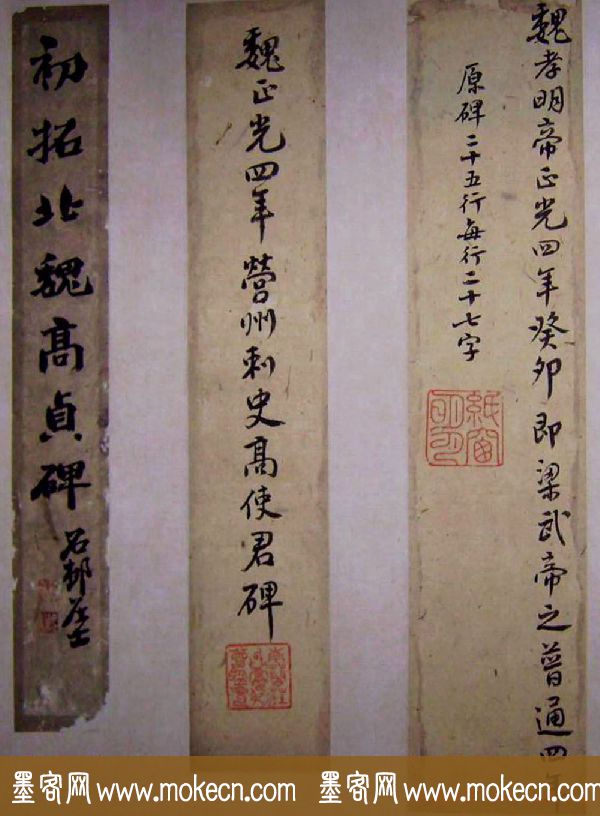 魏孝明帝正光四年癸卯即梁武帝之普通四年
原碑二十五行每行二十七字
紙窗
魏正光四年營州刺史高使君碑
初拓北魏高貞碑
石邨
墨客网 www.mokecn.com 墨客网 www.mokecn.com